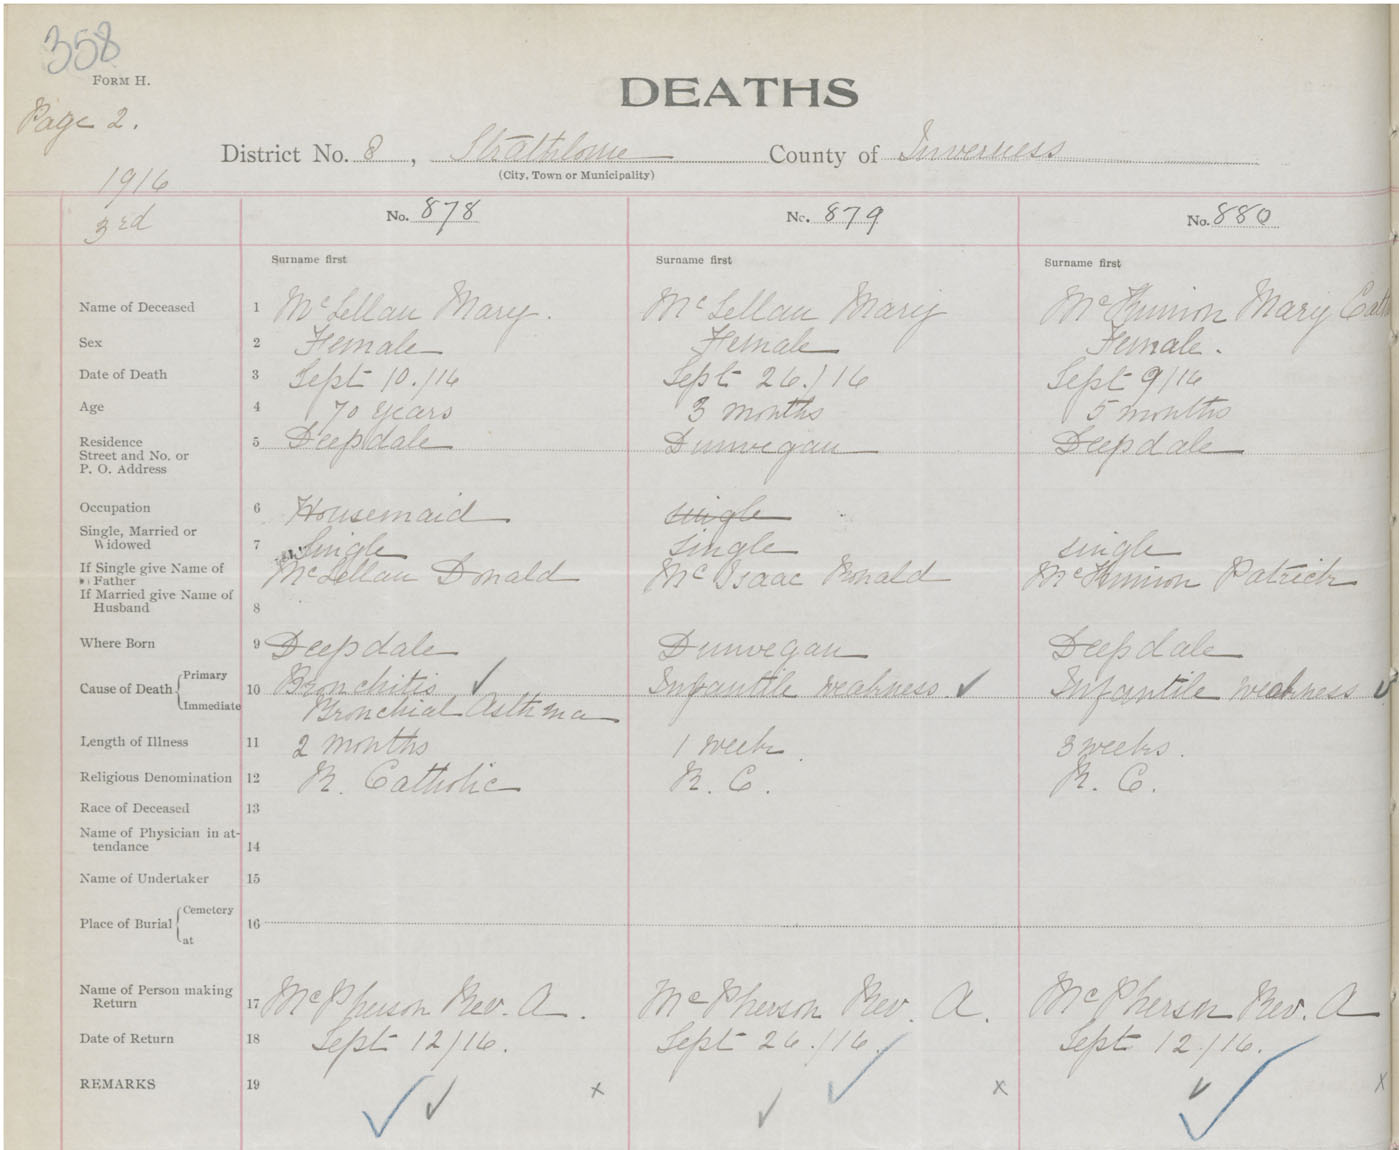 358
FORM H.
DEATHS
Page 2.
District No. 8, Strathlorne County of Inverness
(City, Town or Municipality)
1916
3rd
No. 878 No. 879 No. 880
Surname first Surname first Surname first
Name of Deceased 1 McLellan Mary. McLellan Mary McKinnon Mary
Sex 2 Female Female Female.
Date of Death 3 Sept 10./16 Sept 26./16 Sept 9/16
Age 4 70 years 3 months 5 months
Residence 5 Deepdale Dunvegan Deepdale
Street and No. or
P. O. Address
Occupation 6 Housemaid single
Single, Married or
Widowed 7 Single single single
If Single give Name of
Father McLellan Donald McIsaac Ronald McKinnon Patrick
If Married give Name of
Husband 8
Where Born 9 Deepdale Dunvegan Deepdale
Cause of Death Primary 10 Bronchitis ✓ Infantile weakness ✓ Infantile weakness ✓
Immediate Bronchial Asthma
Length of Illness 11 2 months 1 week 3 weeks.
Religious Denomination 12 R. Catholic R. C. R. C.
Race of Deceased 13
Name of Physician in at-
tendance 14
Name of Undertaker 15
Place of Burial Cemetery 16
at
Name of Person making
Return 17 McPherson Rev. A. McPherson Rev. A. McPherson Rev. A
Date of Return 18 Sept 12/16. Sept 26./16. Sept 12./16.
REMARKS 19 ✓ ✓ x ✓ ✓ x ✓ ✓ x